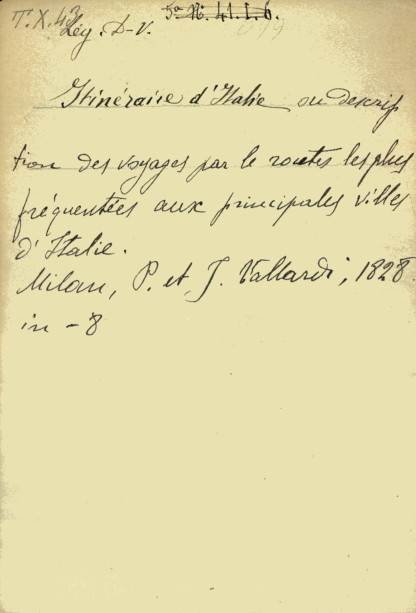 T. X. 43
5ª N. 41. I. 6.
Lég. D-V.
Itinéraire d'Italie ou descrip
tion des voyages par le routes les plus
fréquentées aux principales villes
d'Italie.
Milan, P. et J. Vallardi, 1828.
in-8